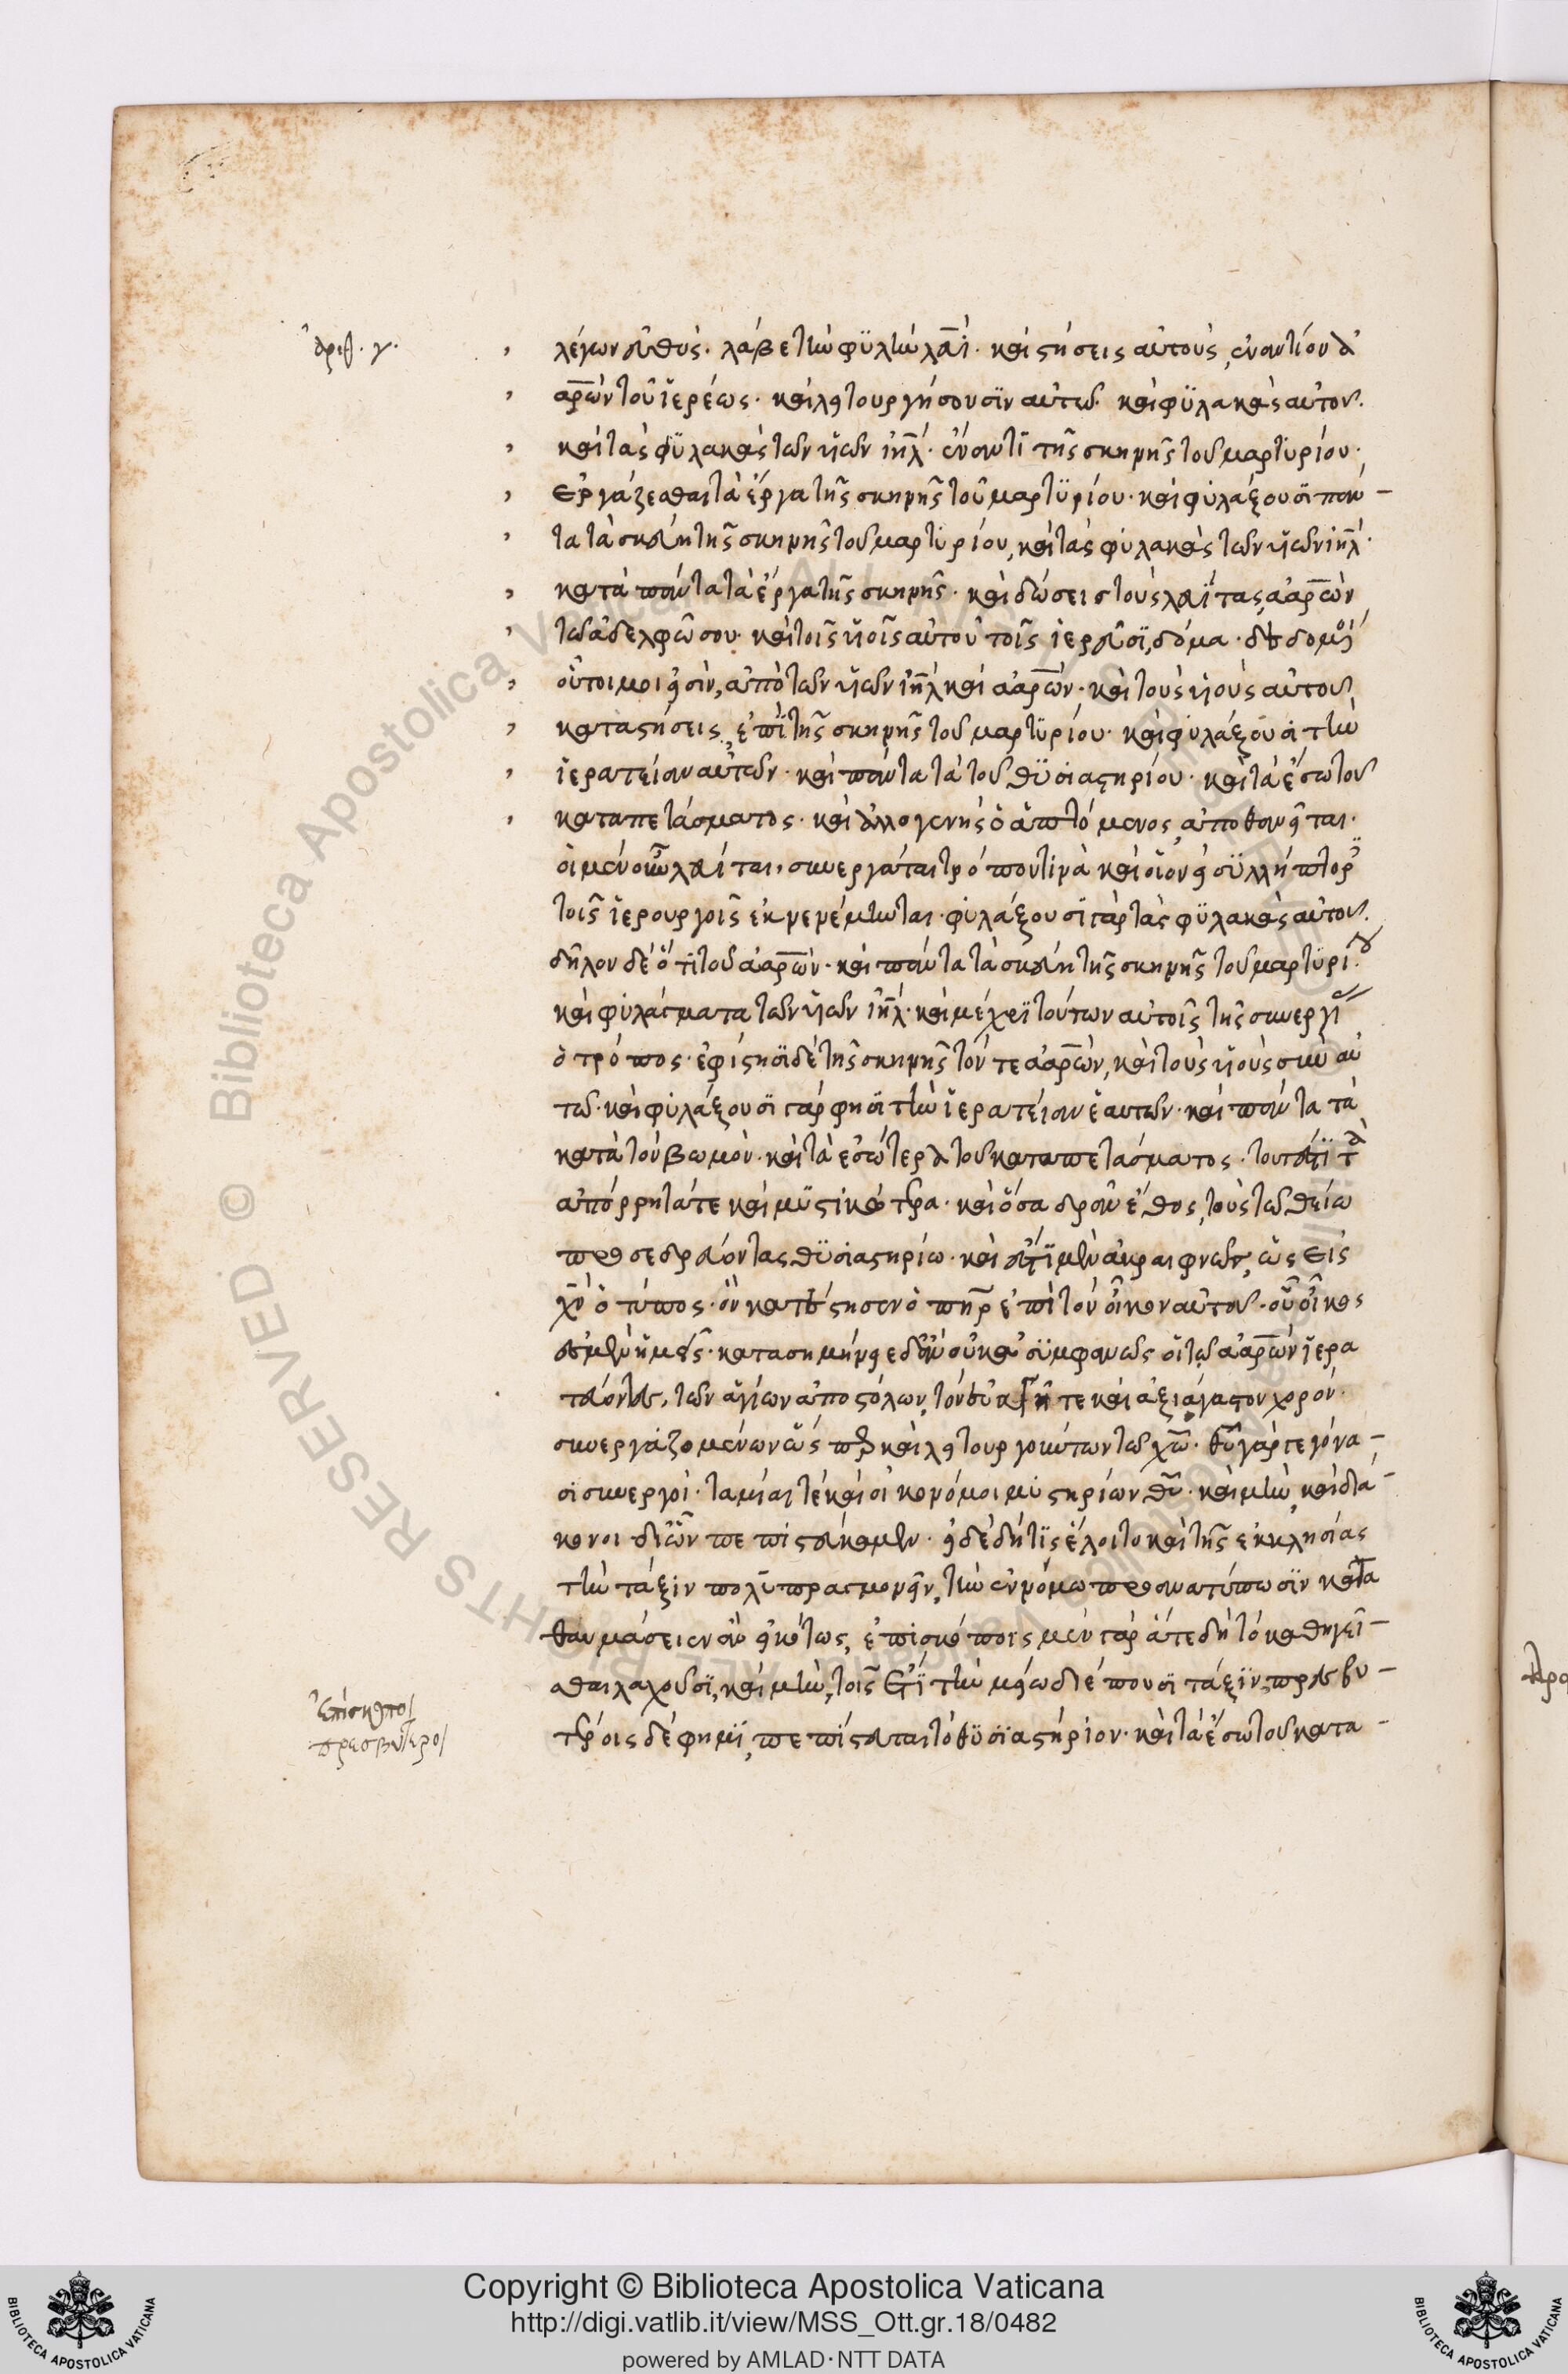 ἀριθ. γ.
λέγων εὐθύς. λάβε τὴν φυλὴν λευί. καὶ στήσεις αὐτοὺς, ἐναντίον ἀ
αρὼν τοῦ ἱερέως. καὶ λειτουργήσουσιν αὐτῶ. καὶ φυλακὰς αὐτοῦ.
καὶ τὰς φυλακὰς τῶν υἱῶν ιηλ. ἔναντι τῆς σκηνῆς τοῦ μαρτυρίου.
ἐργάζεσθαι τὰ ἔργα τῆς σκηνῆς τοῦ μαρτυρίου. καὶ φυλάξουσι πάν-
τα τὰ σκεύη τῆς σκηνῆς τοῦ μαρτυρίου, καὶ τὰς φυλακὰς τῶν υἱῶν ιηλ.
κατὰ πάντα τὰ ἔργα τῆς σκηνῆς. καὶ δώσεις τοὺς λευίτας, ἀαρὼν
τῶ ἀδελφῶ σου. καὶ τοῖς υἱοῖς αὐτοῦ τοῖς ἱερεῦσι, δόμα. δεδομένοι
οὗτοι μοι εἰσὶν, ἀπὸ τῶν υἱῶν ιηλ καὶ ἀαρὼν. καὶ τοὺς υἱοὺς αὐτοῦ
καταστήσεις, ἐπὶ τῆς σκηνῆς τοῦ μαρτυρίου. καὶ φυλάξουσι τὴν
ἱερατείαν αὐτῶν. καὶ πάντα τὰ τοῦ θυσιαστηρίου. καὶ τὰ ἔσω τοῦ
καταπετάσματος. καὶ ἀλλογενὴς ὁ ἁπτόμενος, ἀποθανεῖται.
οἱ μὲν οὖν λευίται, συνεργάται τρόπον τινὰ καὶ οἱονεὶ συλλήπτορες
τοῖς ἱερουργοῖς ἐκνενέμηνται. φυλάξουσι γὰρ τὰς φυλακὰς αὐτοῦ.
δῆλον δὲ ὅτι τοῦ ἀαρὼν. καὶ πάντα τὰ σκεύη τῆς σκηνῆς τοῦ μαρτυρίου.
καὶ φυλάγματα τῶν υἱῶν ιηλ. καὶ μέχρι τούτων αὐτοῖς τῆς συνεργίας
ὁ τρόπος. ἐφίστησι δὲ τῆς σκηνῆς τόν τε ἀαρὼν, καὶ τοὺς υἱοὺς σὺν αὐ
τῶ. καὶ φυλάξουσι γάρ φησι τὴν ἱερατείαν ἑαυτῶν. καὶ πάντα τὰ
κατὰ τὸν βωμὸν. καὶ τὰ ἐσώτερα τοῦ καταπετάσματος. τουτέστι τὰ
ἀπόρρητά τε καὶ μυστικώτερα. καὶ ὅσα δρᾶν ἔθος, τοὺς τῶ θείω
προσεδρεύοντας θυσιαστηρίω. καὶ ἔστι μὲν ἀκραιφνῶς, ὡς εἰς
χν ὁ τύπος. ὃν κατέστησεν ὁ πηρ ἐπὶ τὸν οἶκον αὐτοῦ. οὗ οἶκος
ἐσμὲν ἡμεῖς. κατασημήνειε δ' ἂν οὐκ ἀσυμφανῶς οἱ τῶ ἀαρὼν ἱερα
τεύοντες, τῶν ἁγίων ἀποστόλων, τὸν εὐαγῆ τε καὶ ἀξιάγαστον χορόν.
συνεργαζομένων ὥσπερ καὶ λειτουργούντων τῶ χω. θυ γὰρ γεγόνα-
σι συνεργοὶ. ταμίαι τὲ καὶ οἰκονόμοι μυστηρίων θυ. καὶ μὴν, καὶ διά-
κονοι δι' ὧν πεπιστεύκαμεν. εἰ δὲ δή τις ἕλοιτο καὶ τῆς ἐκκλησίας
τὴν τάξιν πολυπραγμονεῖν, τὴν ἐν νόμω προανατύπωσιν κατα
θαυμάσειεν ἂν εἰκότως, ἐπισκόποις μὲν γὰρ ἅτε δὴ τὸ καθηγεῖ-
σθαι λαχοῦσι, καὶ μὴν, τοῖς ἔτι τὴν μείω διέπουσι τάξιν, πρεσβυ-
τέροις δέ φημι, πεπίστευται τὸ θυσιαστήριον. καὶ τὰ ἔσω τοῦ κατα-
ἐπίσκοποι
πρεσβύτεροι
Copyright © Biblioteca Apostolica Vaticana
http://digi.vatlib.it/view/MSS_Ott.gr.18/0482
powered by AMLAD·NTT DATA